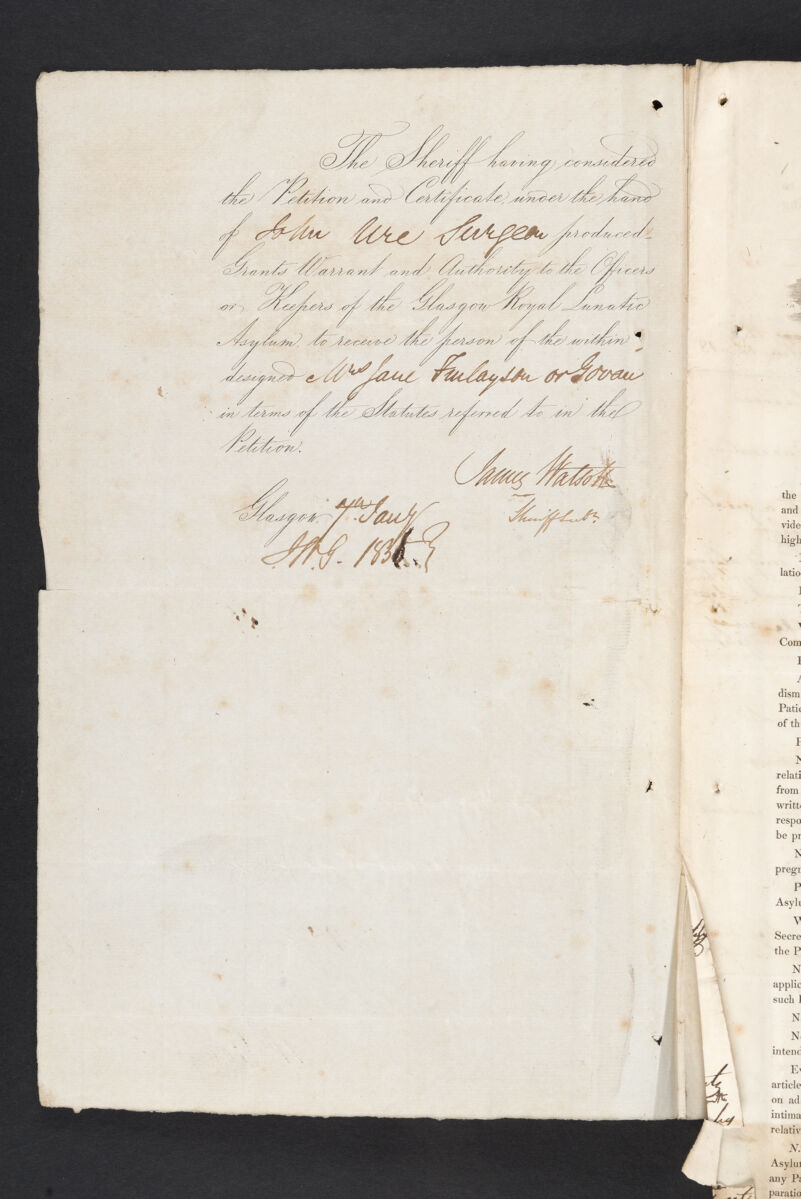 The Sheriff having considered
the Petition and Certificate under the hand
of John Ure Surgeon produced
Grants Warrant and Authority to the Officers
or Keepers of the Glasgow Royal Lunatic
Asylum to receive the person of the within
designed Mrs Jane Finlayson or Govan
in terms of the Statutes referred to in the
Petition.
James Watson
Glasgow 7th Jany
Sheriff Subt.
183
the
and
vide
high
latio
Com
dism
Patie
of th
N
relati
from
writte
respo
be pr
N
pregn
P
Asylu
W
Secre
the P
N
applic
such
N
No
intend
Ev
article
on ad
intima
relativ
N.
Asylu
any Pa
paratio